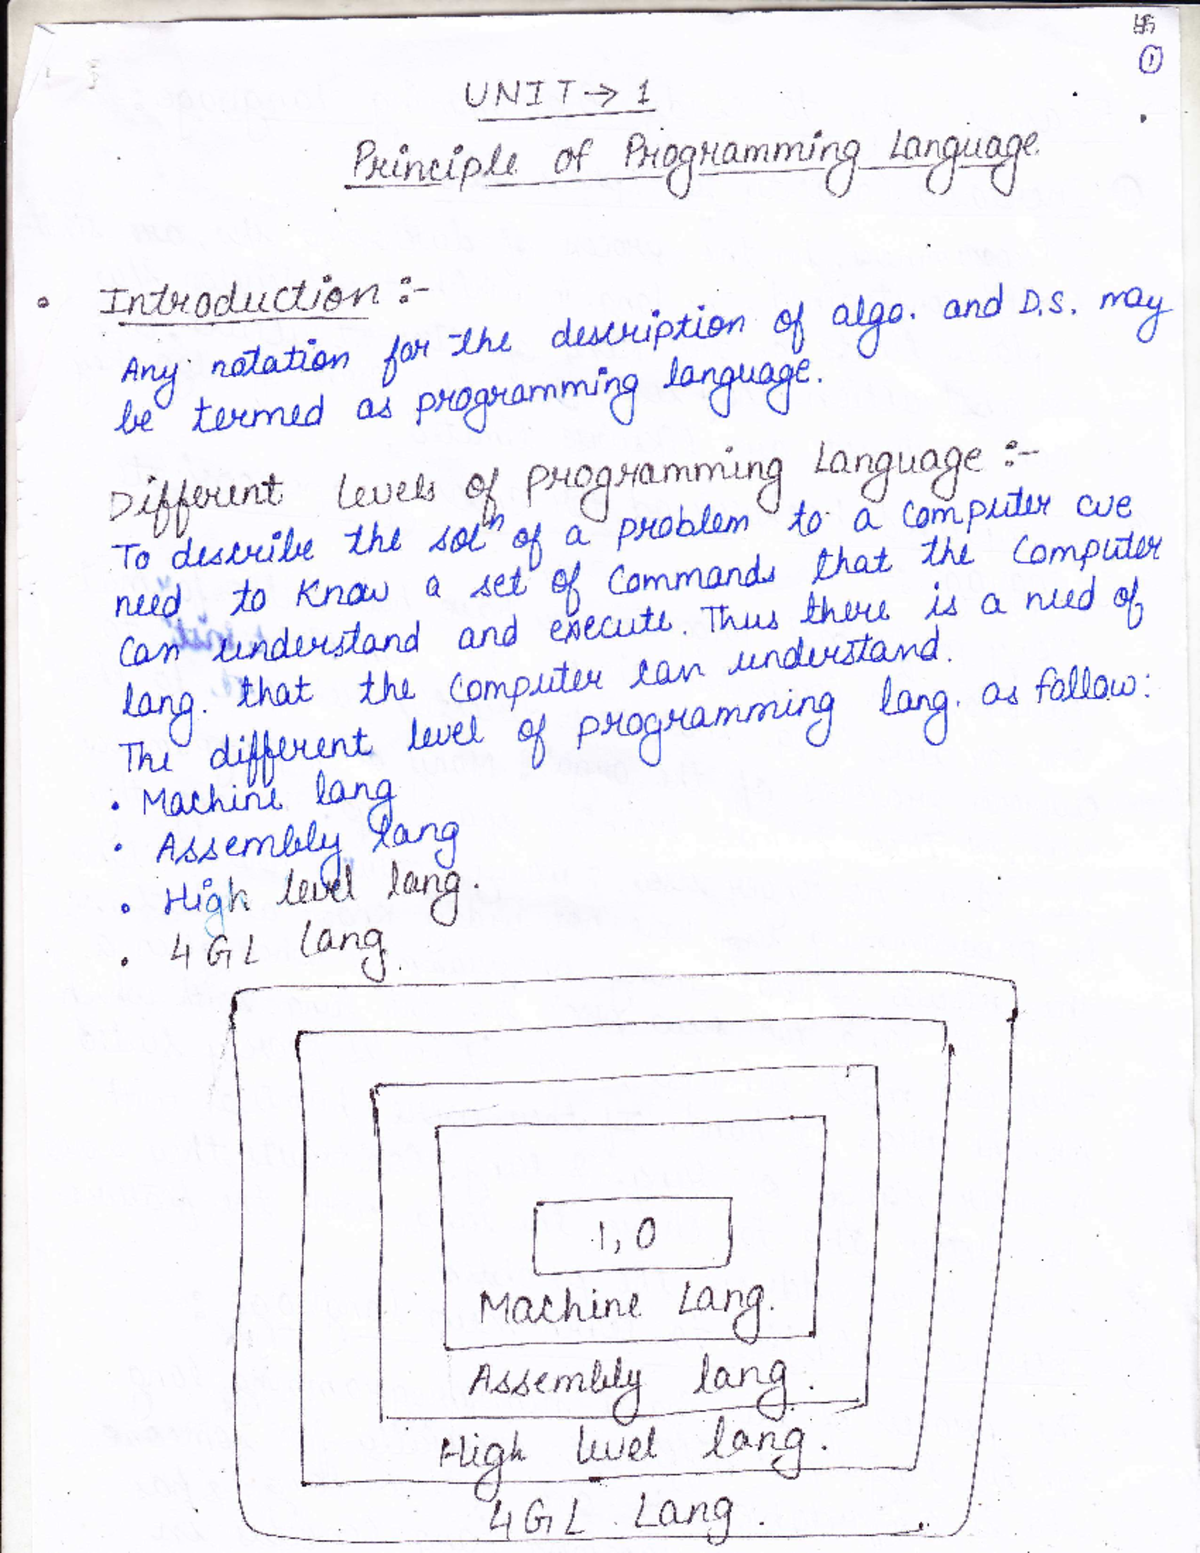 卐
①
UNIT → 1
Principle of Programming Language
• Introduction :-
Any notation for the description of algo. and D.S. may
be termed as programming language.
Different levels of programming Language :-
To describe the solⁿ of a problem to a computer we
need to know a set of commands that the computer
can understand and execute. Thus there is a need of
lang. that the computer can understand.
The different level of programming lang. as follow:
• Machine lang
• Assembly lang
• High level lang.
• 4GL lang.
1, 0
Machine Lang.
Assembly lang.
High level lang.
4GL Lang.